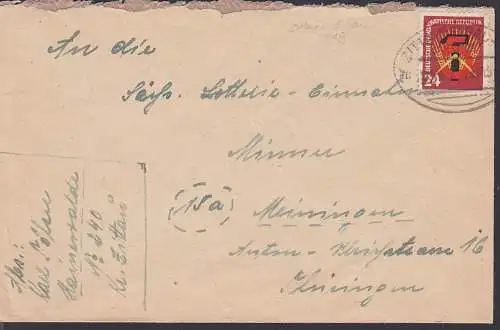 An die
Sächs. Lotterie-Einnahme
Minner
(15a) Meiningen
Anton-Ulrichstrasse 16
Thüringen
Abs.:
Hainewalde
No 240
Kr. Zittau
DEUTSCHE DEMOKRATISCHE REPUBLIK
24